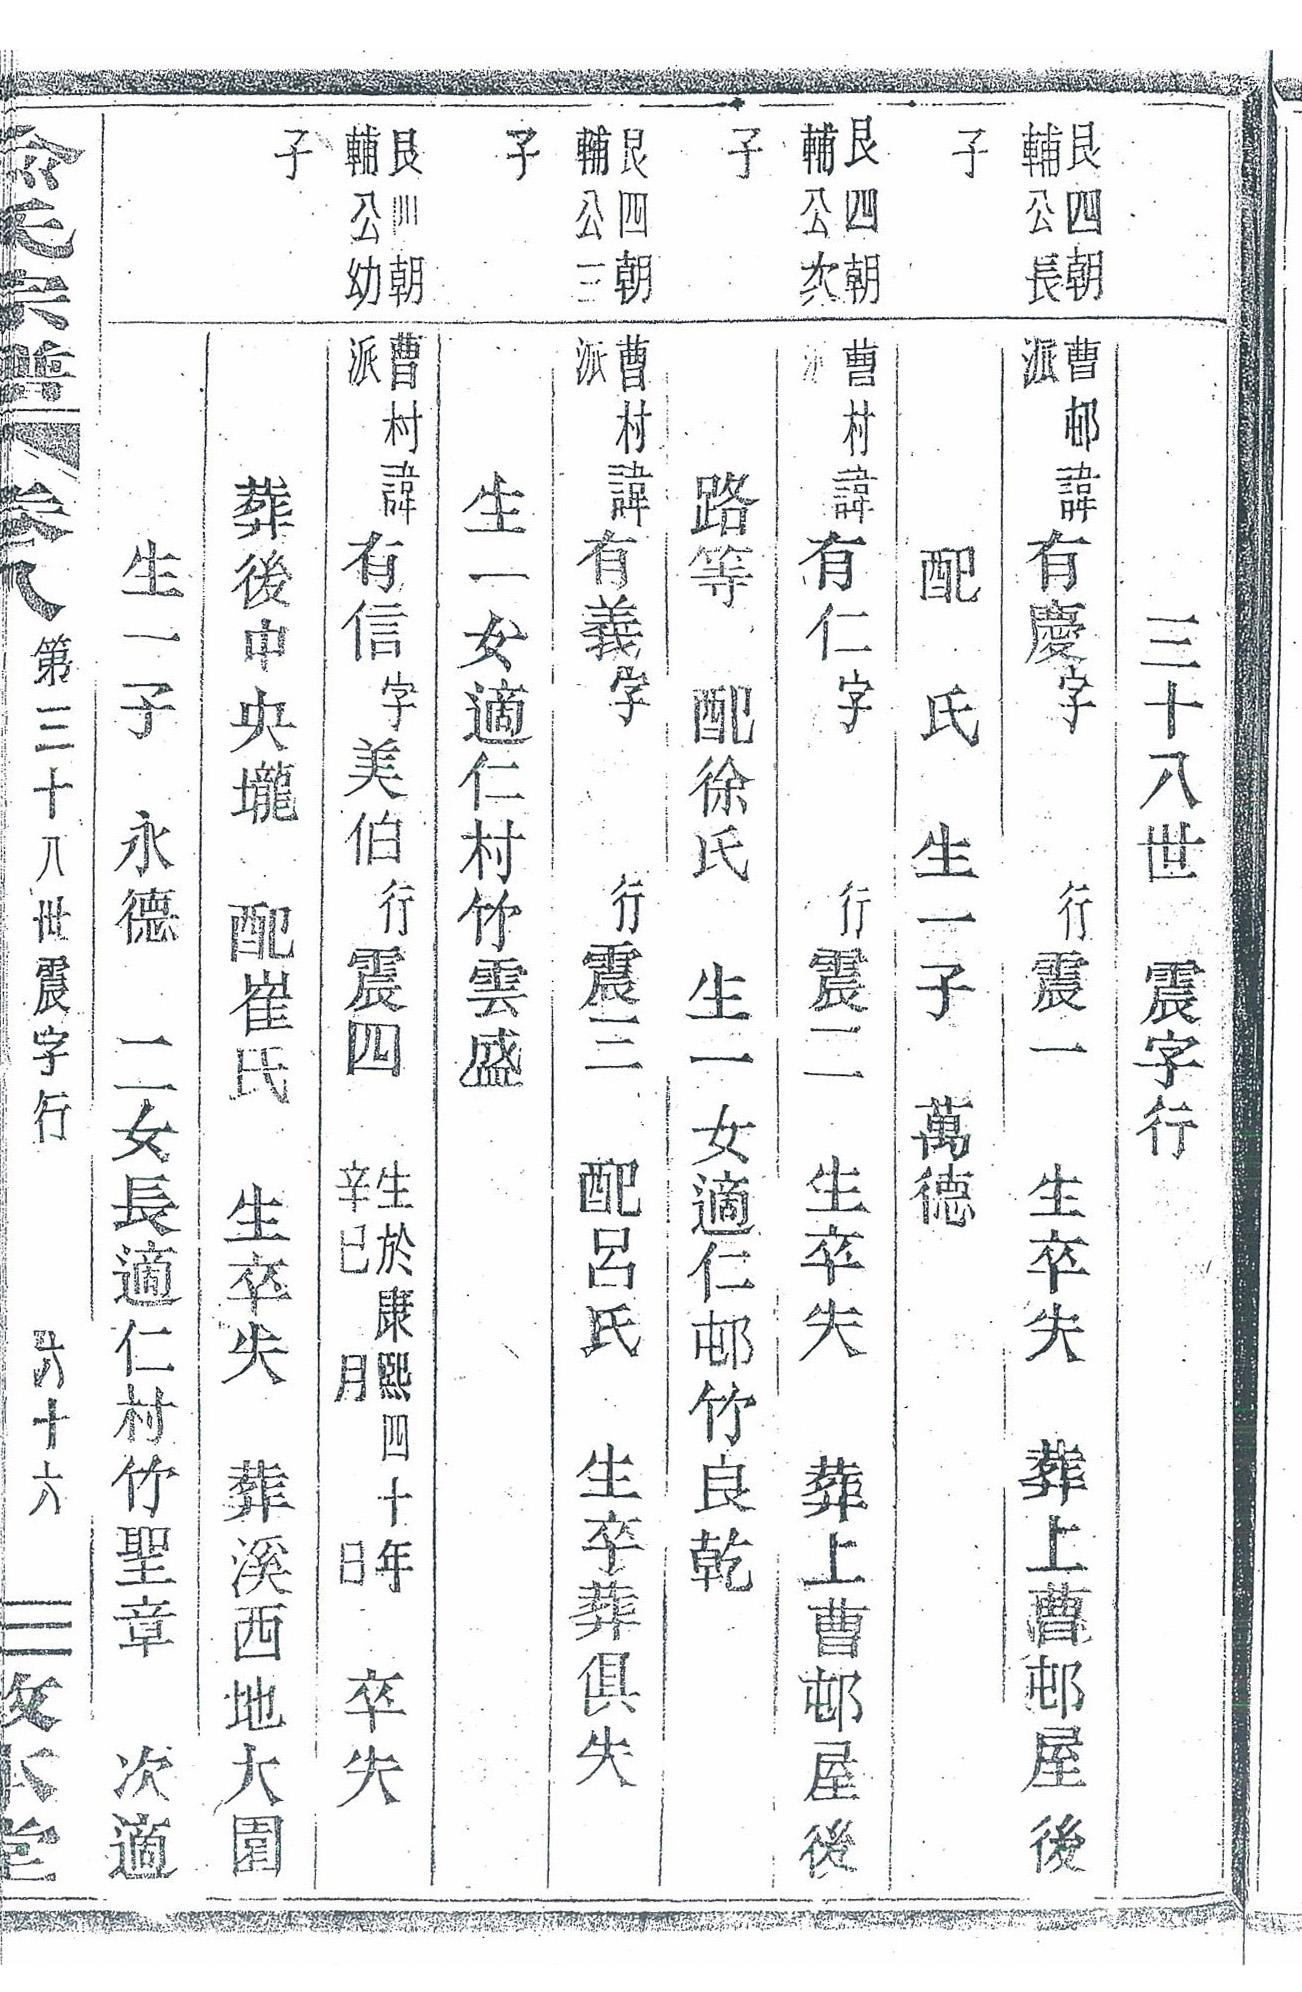 三十八世 震字行
艮四朝輔公長子
曹邨派諱有慶字 行震一 生卒失 葬上曹邨屋後
配 氏 生一子 萬德
艮四朝輔公次子
曹村派諱有仁字 行震二 生卒失 葬上曹邨屋後
路等 配徐氏 生一女適仁邨竹良乾
艮四朝輔公三子
曹村派諱有義字 行震三 配呂氏 生卒葬俱失
生一女適仁村竹雲盛
艮四朝輔公幼子
曹村派諱有信字美伯行震四 生於康熙四十年辛巳 月 日 卒失
葬後中央壠 配崔氏 生卒失 葬溪西地大園
生一子 永德 二女長適仁村竹聖章 次適
氏宗譜 卷八 第三十八世震字行 六十六 本堂